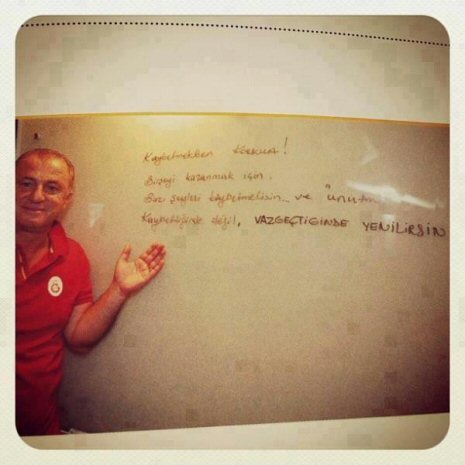 Kaybetmekten KORKMA!
Birşeyi kazanmak için.
Bazı şeyleri kaybetmelisin.. ve "unutma
Kaybettiğinde değil, VAZGEÇTİĞİNDE YENİLİRSİN